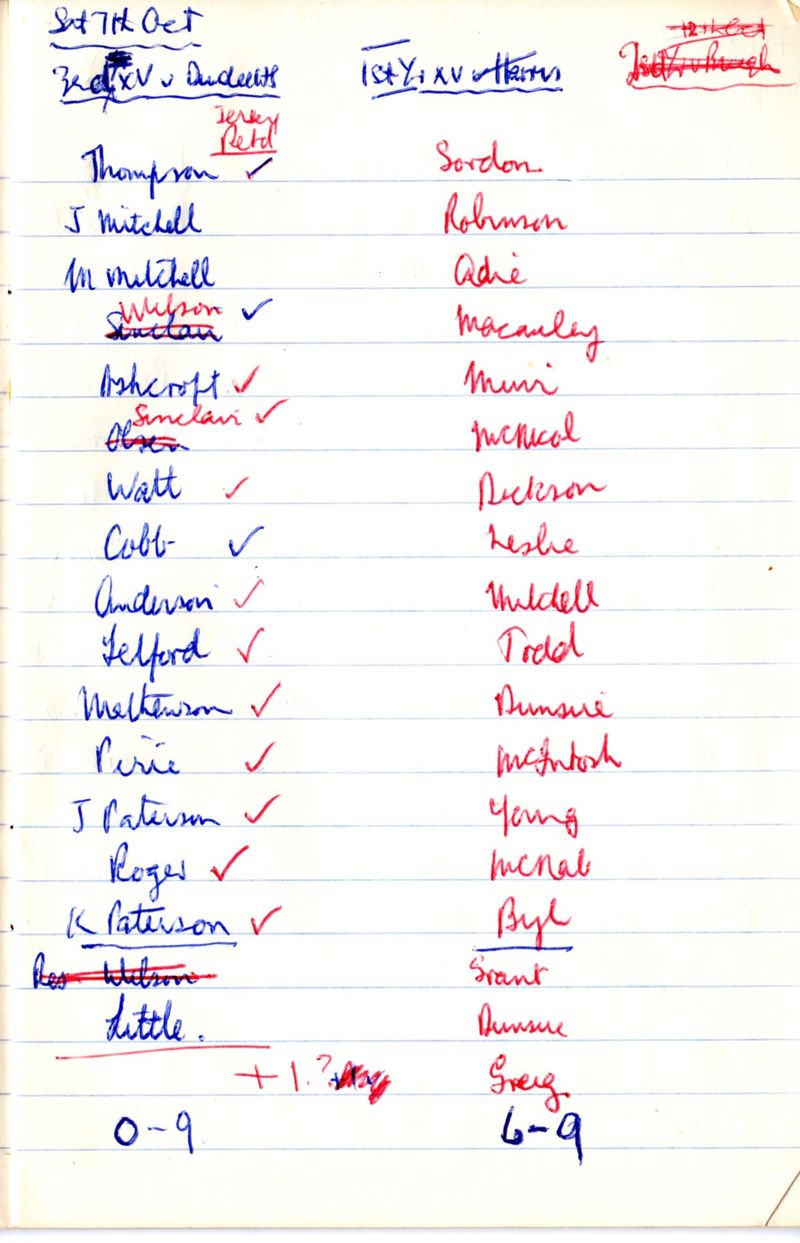 Sat 7th Oct
3rd XV v Dundee HS
1st Yr XV v Harris
12th Oct
1st Yr v Brough
Jersey
Retd
Thompson ✓ Gordon
J Mitchell Robinson
M Mitchell Adie
Wilson ✓
Sinclair Macauley
Ashcroft ✓ Muir
Sinclair ✓
Olsen McNicol
Watt ✓ Dickson
Cobb ✓ Leslie
Anderson ✓ Mitchell
Telford ✓ Todd
Mathewson ✓ Dunsire
Pirie ✓ McIntosh
J Paterson ✓ Young
Roger ✓ McNab
K Paterson ✓ Byl
Res Wilson Grant
Little. Dunsire
+1.? Greig
0-9 6-9